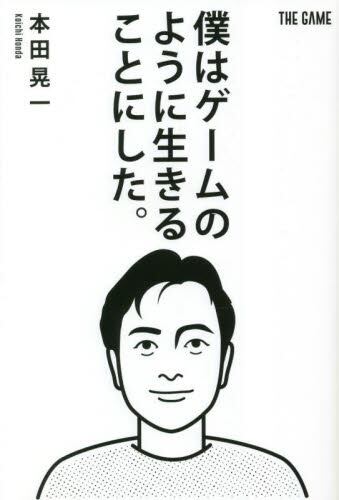 THE GAME
僕はゲームの
ように生きる
ことにした。
本田晃一
Koichi Honda